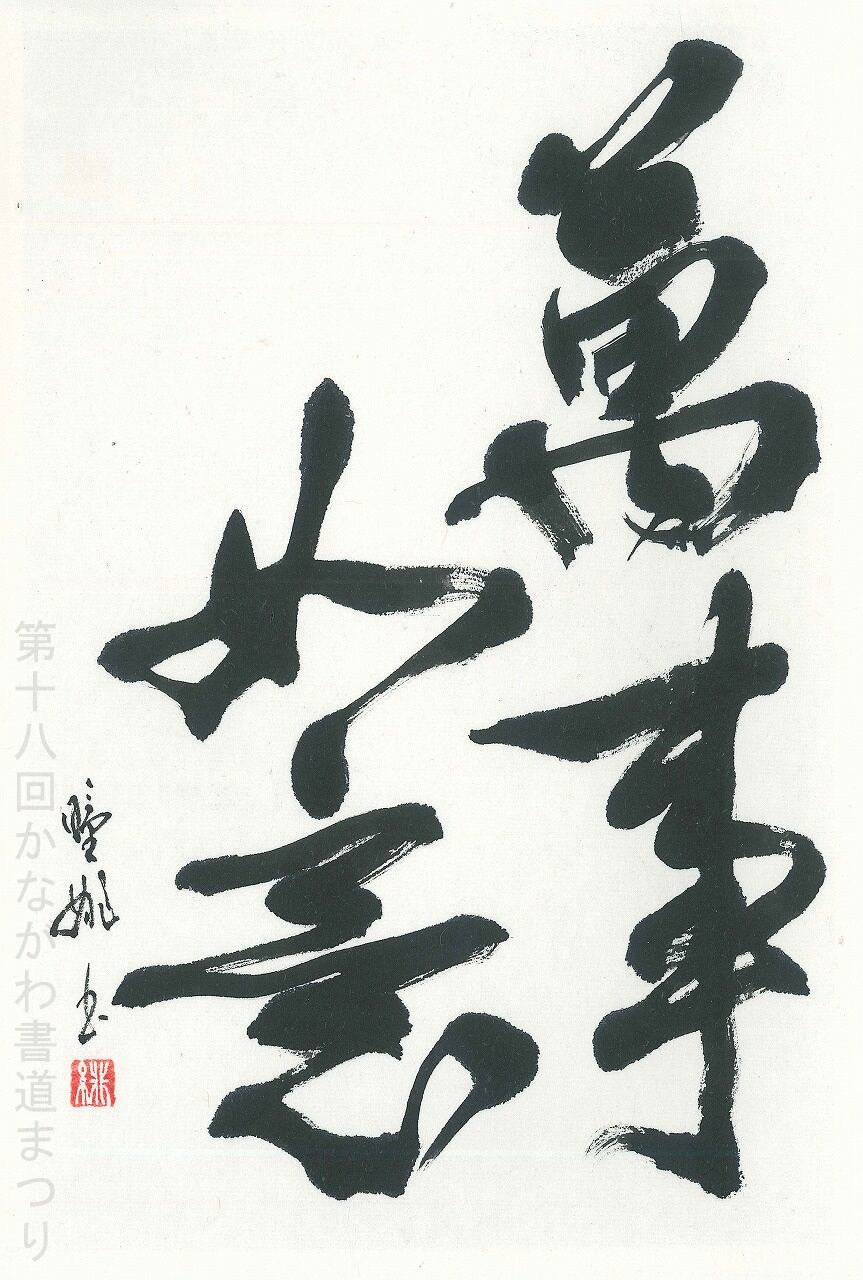 萬事
如意
書
第十八回かながわ書道まつり